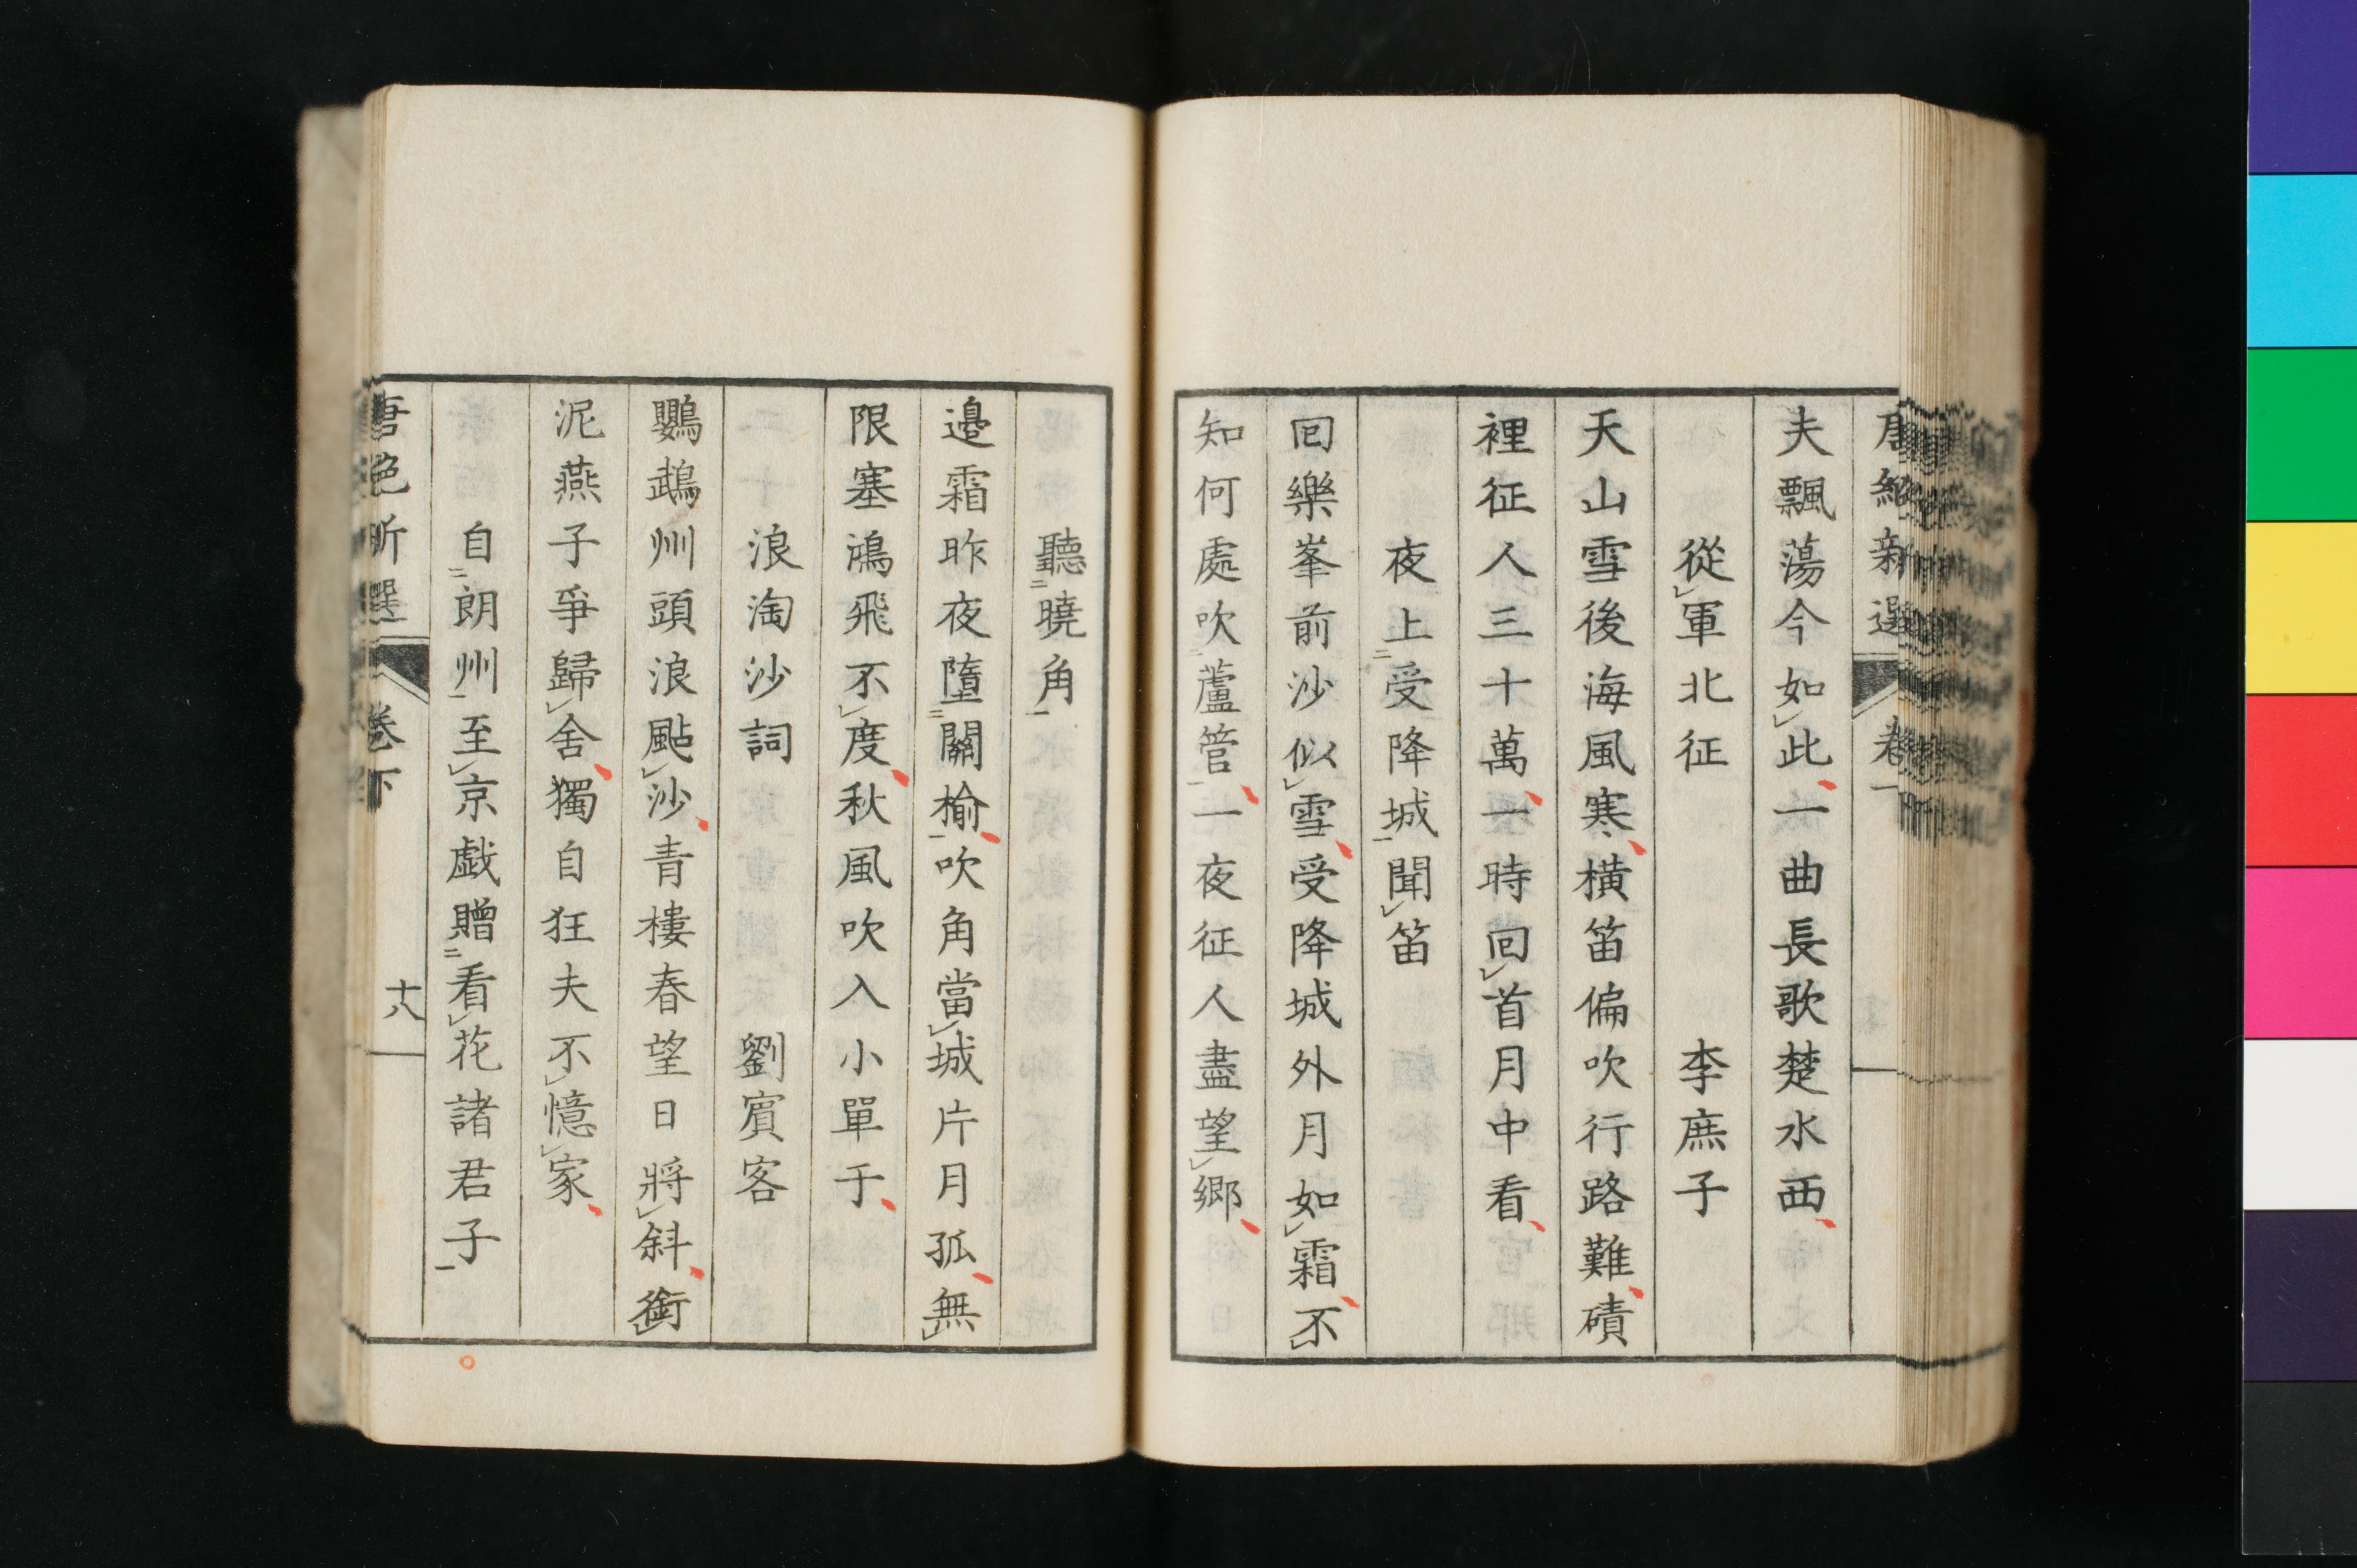 唐絕新選 卷
夫飄蕩今如此一曲長歌楚水西
從軍北征 李庶子
天山雪後海風寒橫笛偏吹行路難磧
裡征人三十萬一時回首月中看
夜上受降城聞笛
回樂峯前沙似雪受降城外月如霜不
知何處吹蘆管一夜征人盡望鄉
聽曉角
邊霜昨夜墮關榆吹角當城片月孤無
限塞鴻飛不度秋風吹入小單于
浪淘沙詞 劉賓客
鸚鵡州頭浪颭沙青樓春望日將斜銜
泥燕子爭歸舍獨自狂夫不憶家
自朗州至京戲贈看花諸君子
唐絕新選 卷下 十八